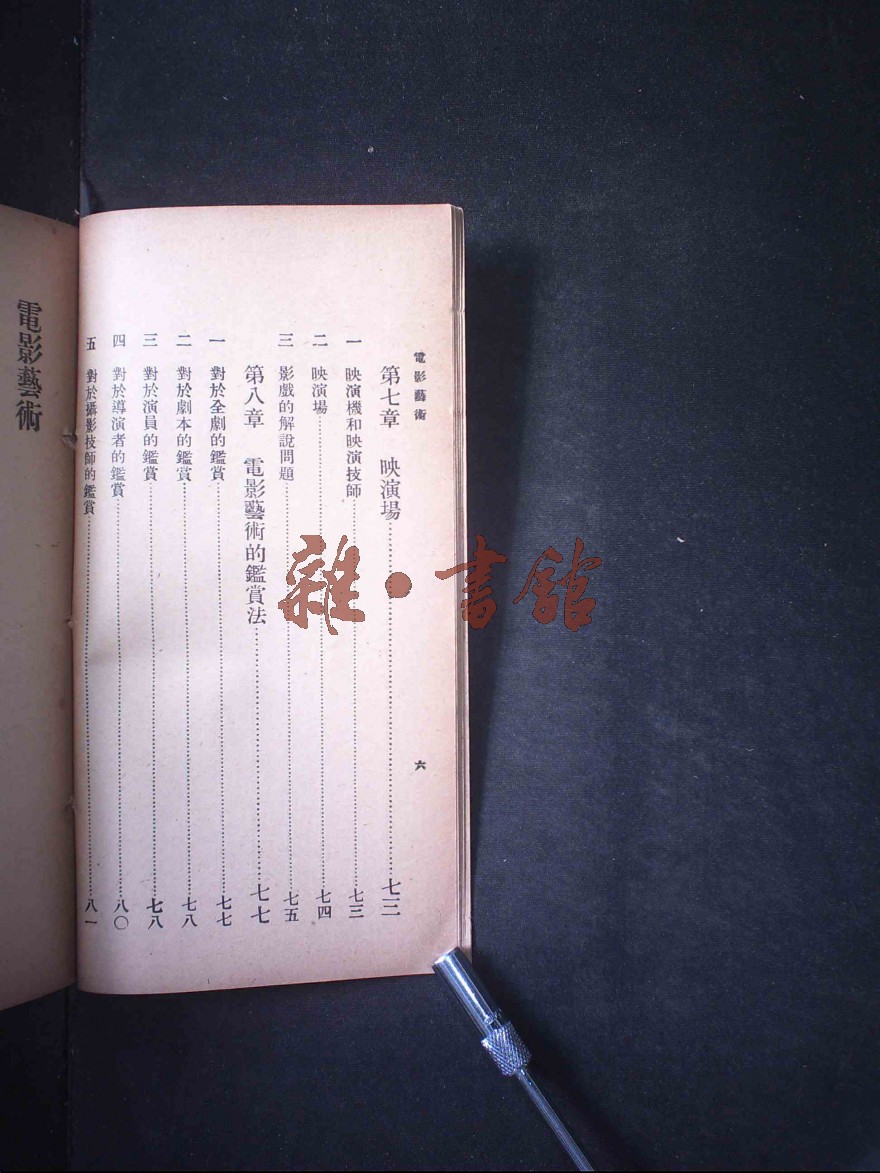 電影藝術
六
第七章　映演場……七三
一　映演機和映演技師……七三
二　映演場……七四
三　影戲的解說問題……七五
第八章　電影藝術的鑑賞法……七七
一　對於全劇的鑑賞……七七
二　對於劇本的鑑賞……七八
三　對於演員的鑑賞……七八
四　對於導演者的鑑賞……八〇
五　對於攝影技師的鑑賞……八一
電影藝術
雜·書館